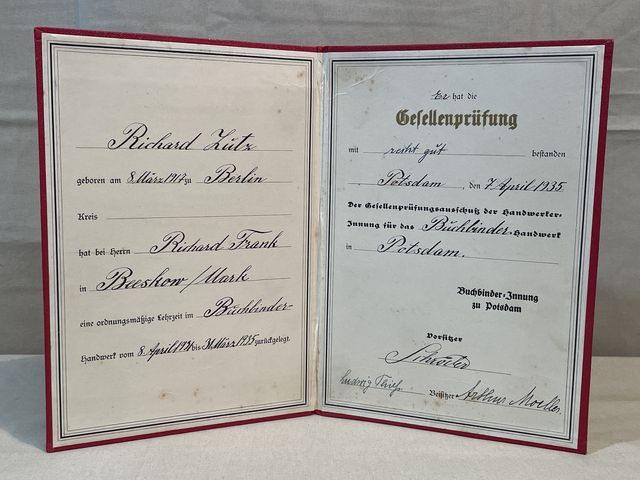 Richard Lütz
geboren am 8. März 1917 zu Berlin
Kreis
hat bei Herrn Richard Frank
in Beeskow/Mark
eine ordnungsmäßige Lehrzeit im Buchbinder-
Handwerk vom 8. April 1931 bis 31. März 1935 zurückgelegt.
Er hat die
Gesellenprüfung
mit recht gut bestanden
Potsdam, den 7. April 1935
Der Gesellenprüfungsausschuß der Handwerker-
Innung für das Buchbinder-Handwerk
in Potsdam.
Buchbinder-Innung
zu Potsdam
Vorsitzer
Schröder
Ludwig
Beisitzer Arthur Moeller.